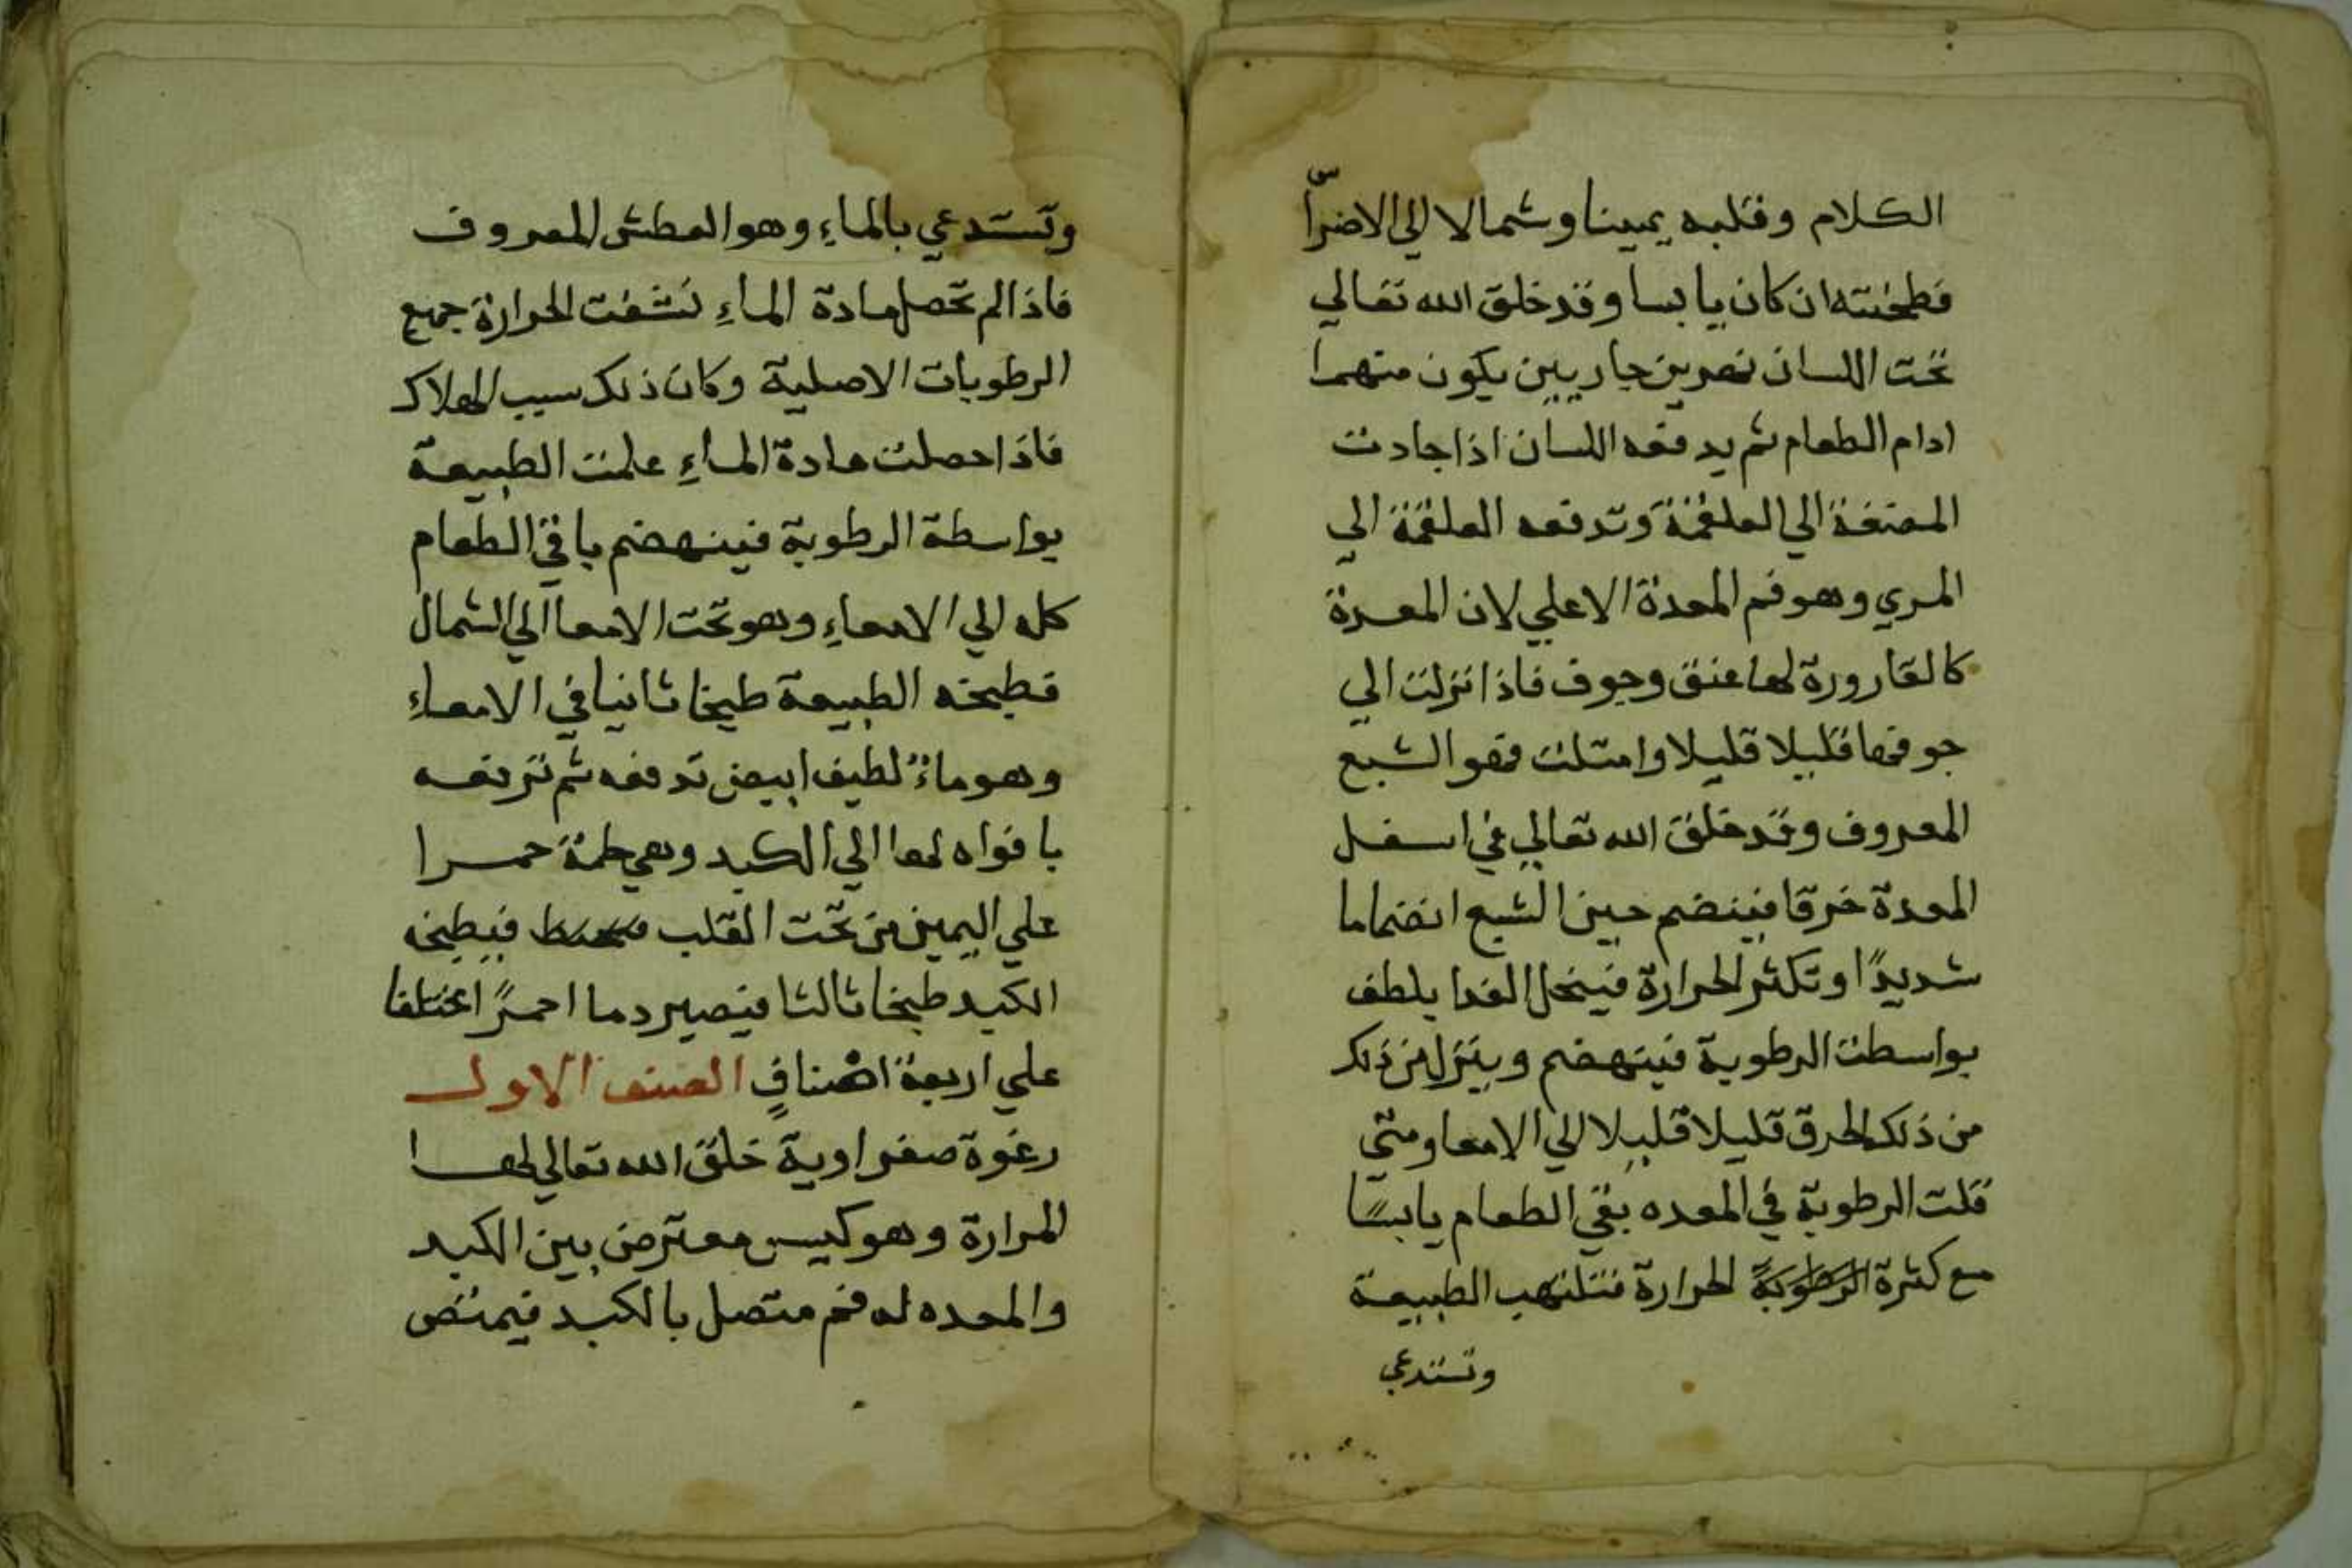 الكلام وقلبه يمينا وشمالا الي الاضراس
فطحنته ان كان يابسا وقد خلق الله تعالي
تحت اللسان نهرين جاريين يكون منهما
ادام الطعام ثم يدفعه اللسان اذا جادت
المضغة الي العلقمة وتدفعه العلقمة الي
المري وهو فم المعدة الاعلي لان المعدة
كالقارورة لها عنق وجوف فاذا نزلت الي
جوفها قليلا قليلا وامتلت فهو الشبع
المعروف وقد خلق الله تعالي في اسفل
المعدة خرقا فينضم حين الشبع انضماما
شديدًا وتكثر الحرارة فينحل الغدا يلطف
بواسطت الرطوبة فينهضم وينزل من ذلك
من ذلك الخرق قليلا قليلا الي الامعا ومتي
قلت الرطوبة في المعده بقي الطعام يابسًا
مع كثرة الرطوبة الحرارة فتلتهب الطبيعة
وتستدعي
وتستدعي بالماءِ وهو العطش المعروف
فاذا لم تحصل مادة الماءِ نشفت الحرارة جميع
الرطوبات الاصلية وكان ذلك سبب الهلاك
فاذا حصلت مادة الماءِ علمت الطبيعة
بواسطة الرطوبة فينهضم باقي الطعام
كله الي الامعاءِ وهو تحت الامعا الي الشمال
فطبخه الطبيعة طبخا ثانيا في الامعاءِ
وهو ماءٌ لطيف ابيض تدفعه ثم ترفعه
بافواه لها الي الكبد وهي حلمة حمرا
علي اليمين من تحت القلب فيطبخه
الكبد طبخا ثالثا فيصير دما احمرًا مختلفا
علي اربعة اصنافٍ الصنف الاول
رغوة صفراوية خلق الله تعالي لها
المرارة وهو كيس معترض بين الكبد
والمعده له فم متصل بالكبد فيمتص